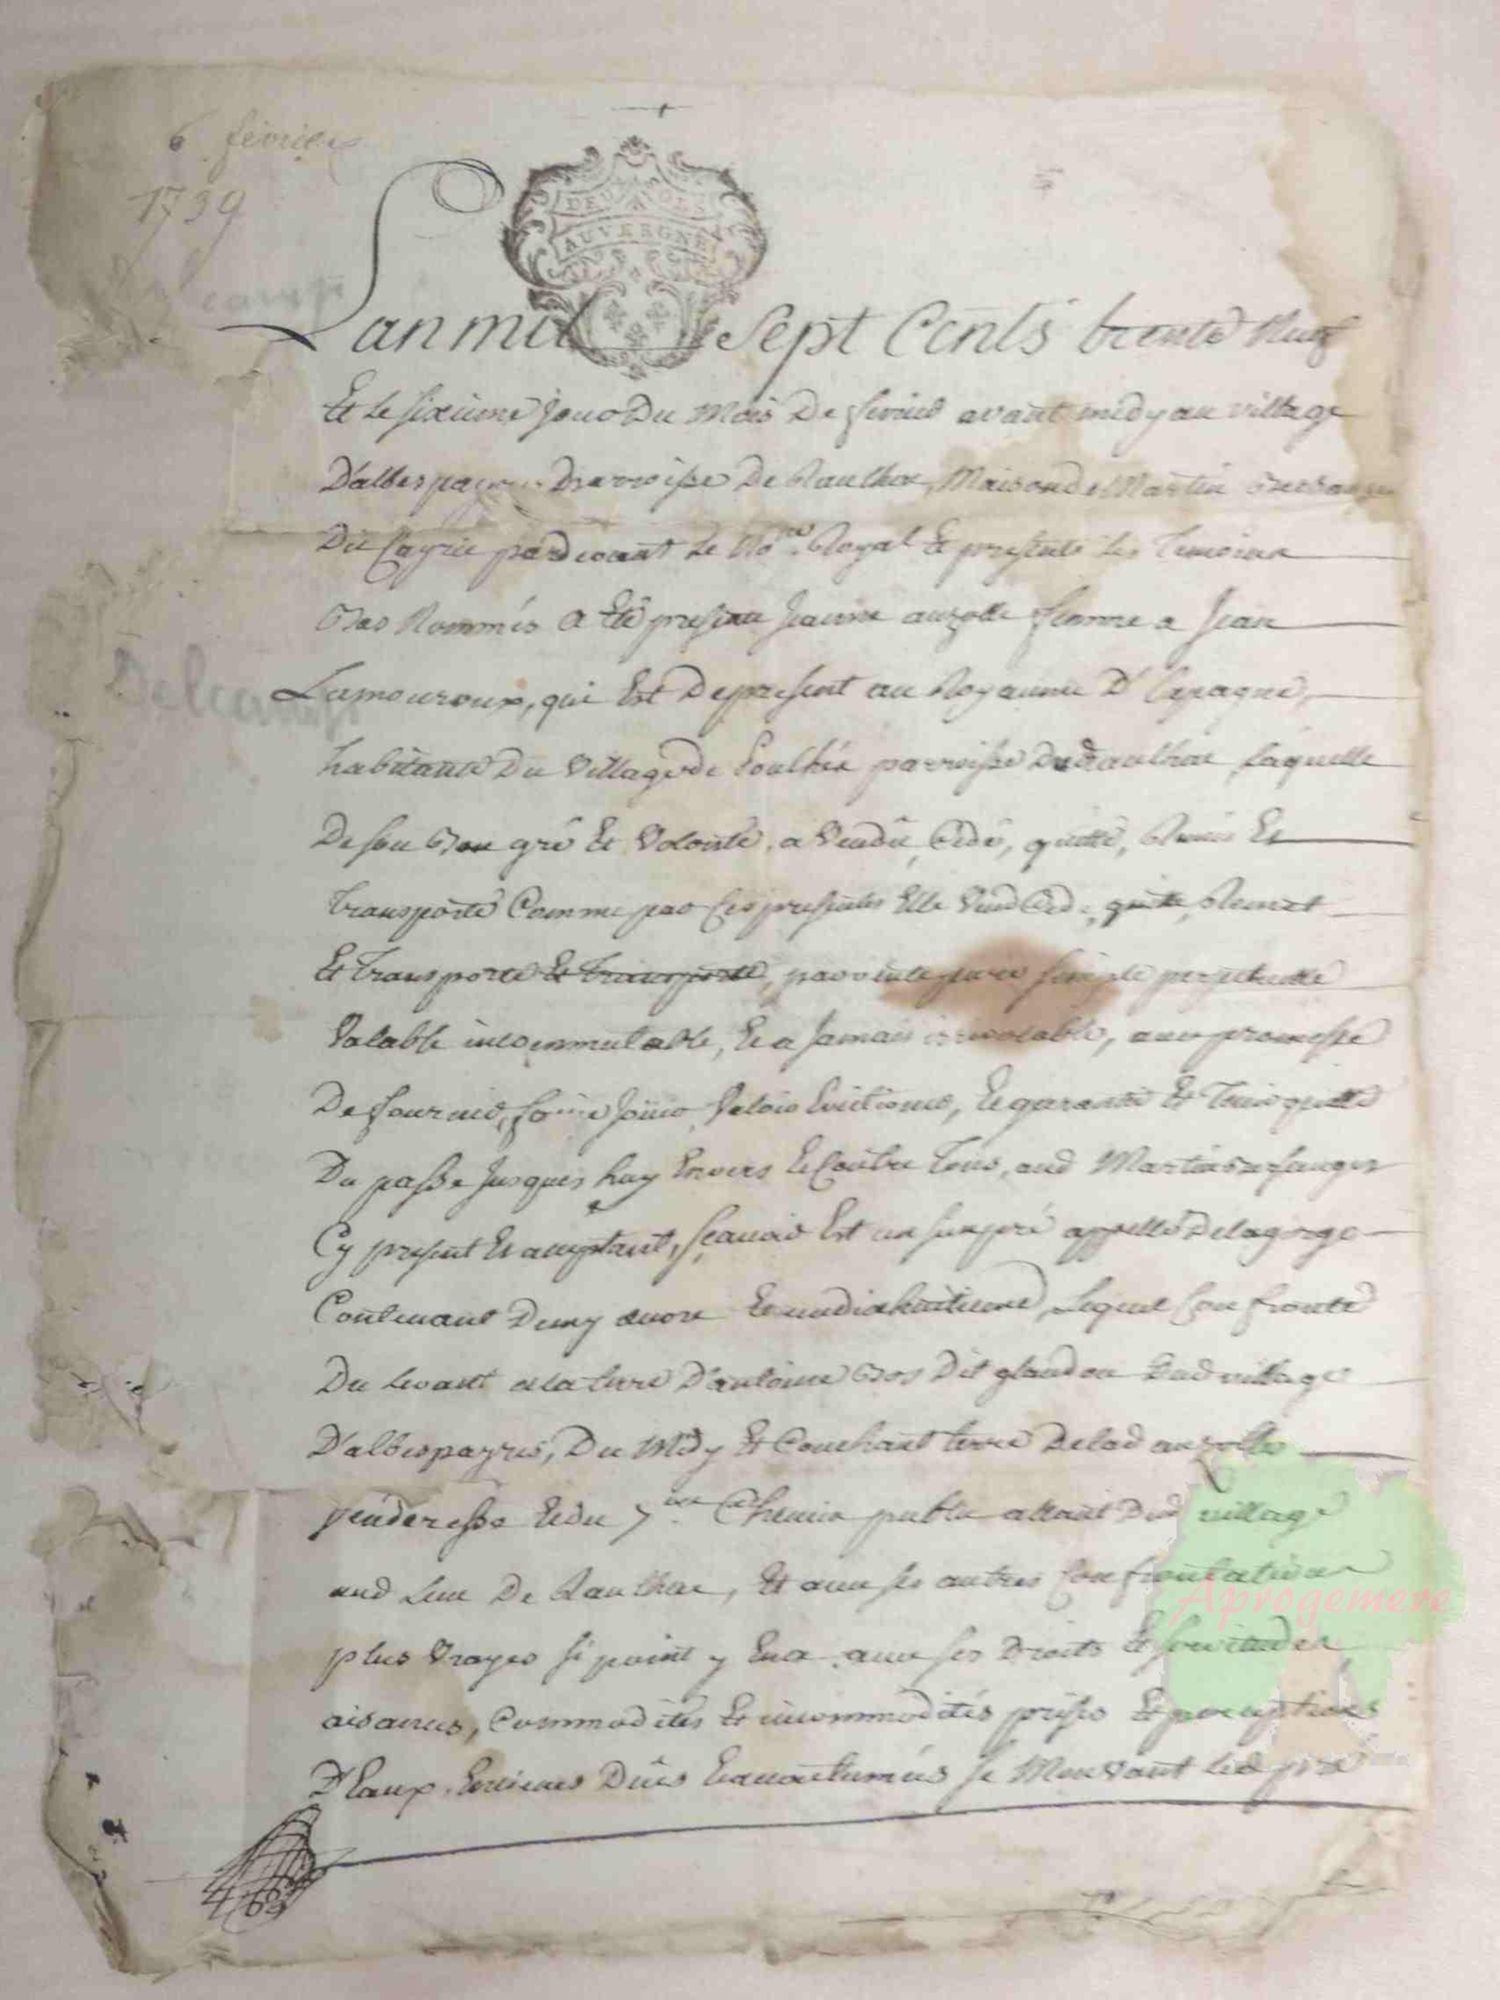 6 février
1739
DEUX SOLS
AUVERGNE
Lan mil Sept Cents trente Neuf
Et le sixieme jour Du Mois De fevrier avant midy au village
D'albespeyres parroisse De Raulhac, Maison de Martin
Du Cayrie pardevant le No.re Royal Et presents les Temoins
Bas Nommés a Eté presente Jeanne auzolle femme a Jean
Lamouroux, qui Est De present au Royaume D'Espagne,
Delcamp
habitante Du Village de parroisse Du Raulhac, laquelle
De son Bon gré Et Volonté, a Vendu, Cédé, quitté, Remis Et
transporté Comme par Ces presentes Elle Vend Cede, quitte, Remet
Et transporte Et transporte, par vente pure simple perpetuelle
Valable incommutable, Et a Jamais irrevocable, avec promesse
De fournir, faire Jouir, Valoir Evictions, Et garantir Et Tenir quitte
Du passé Jusques huy Envers Et Contre Tous, aud Martin
Cy present Et acceptant, sçavoir Est un sien pré appellé De lagorge
Contenant Demy œuvre Et un dixhuitieme, Lequel Confronte
Du levant a la terre D'antoine Bos Dit glandou Dud village
D'albespeyres, Du Midy Et Couchant terre De lad auzolle
venderesse Et du 7.bre Chemin public allant Dud village
aud Lieu De Raulhac, Et avec ses autres Confrontations
plus Vrayes si point y En a, avec ses Droits Et servitudes
aisances, Commodités Et incommodités prises Et perceptions
D'Eaux, Encienes Dues Et accoutumées se Mouvant led pré
Aprogemere